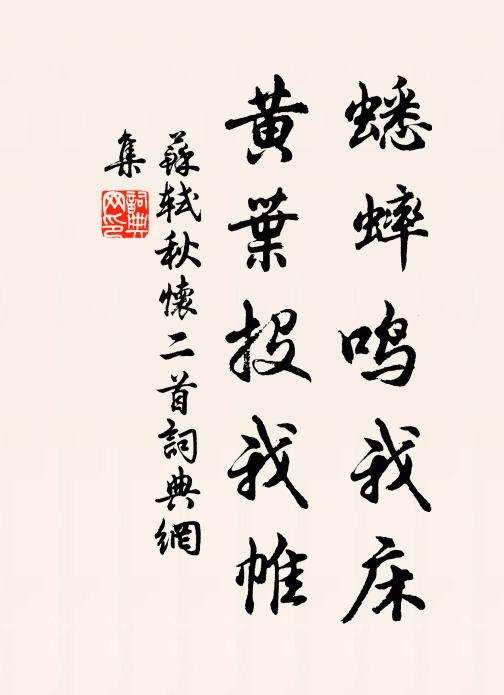 蟋蟀鸣我床
黄葉投我帷
蘇轼秋懷二首詞典網
集
詞典
网印